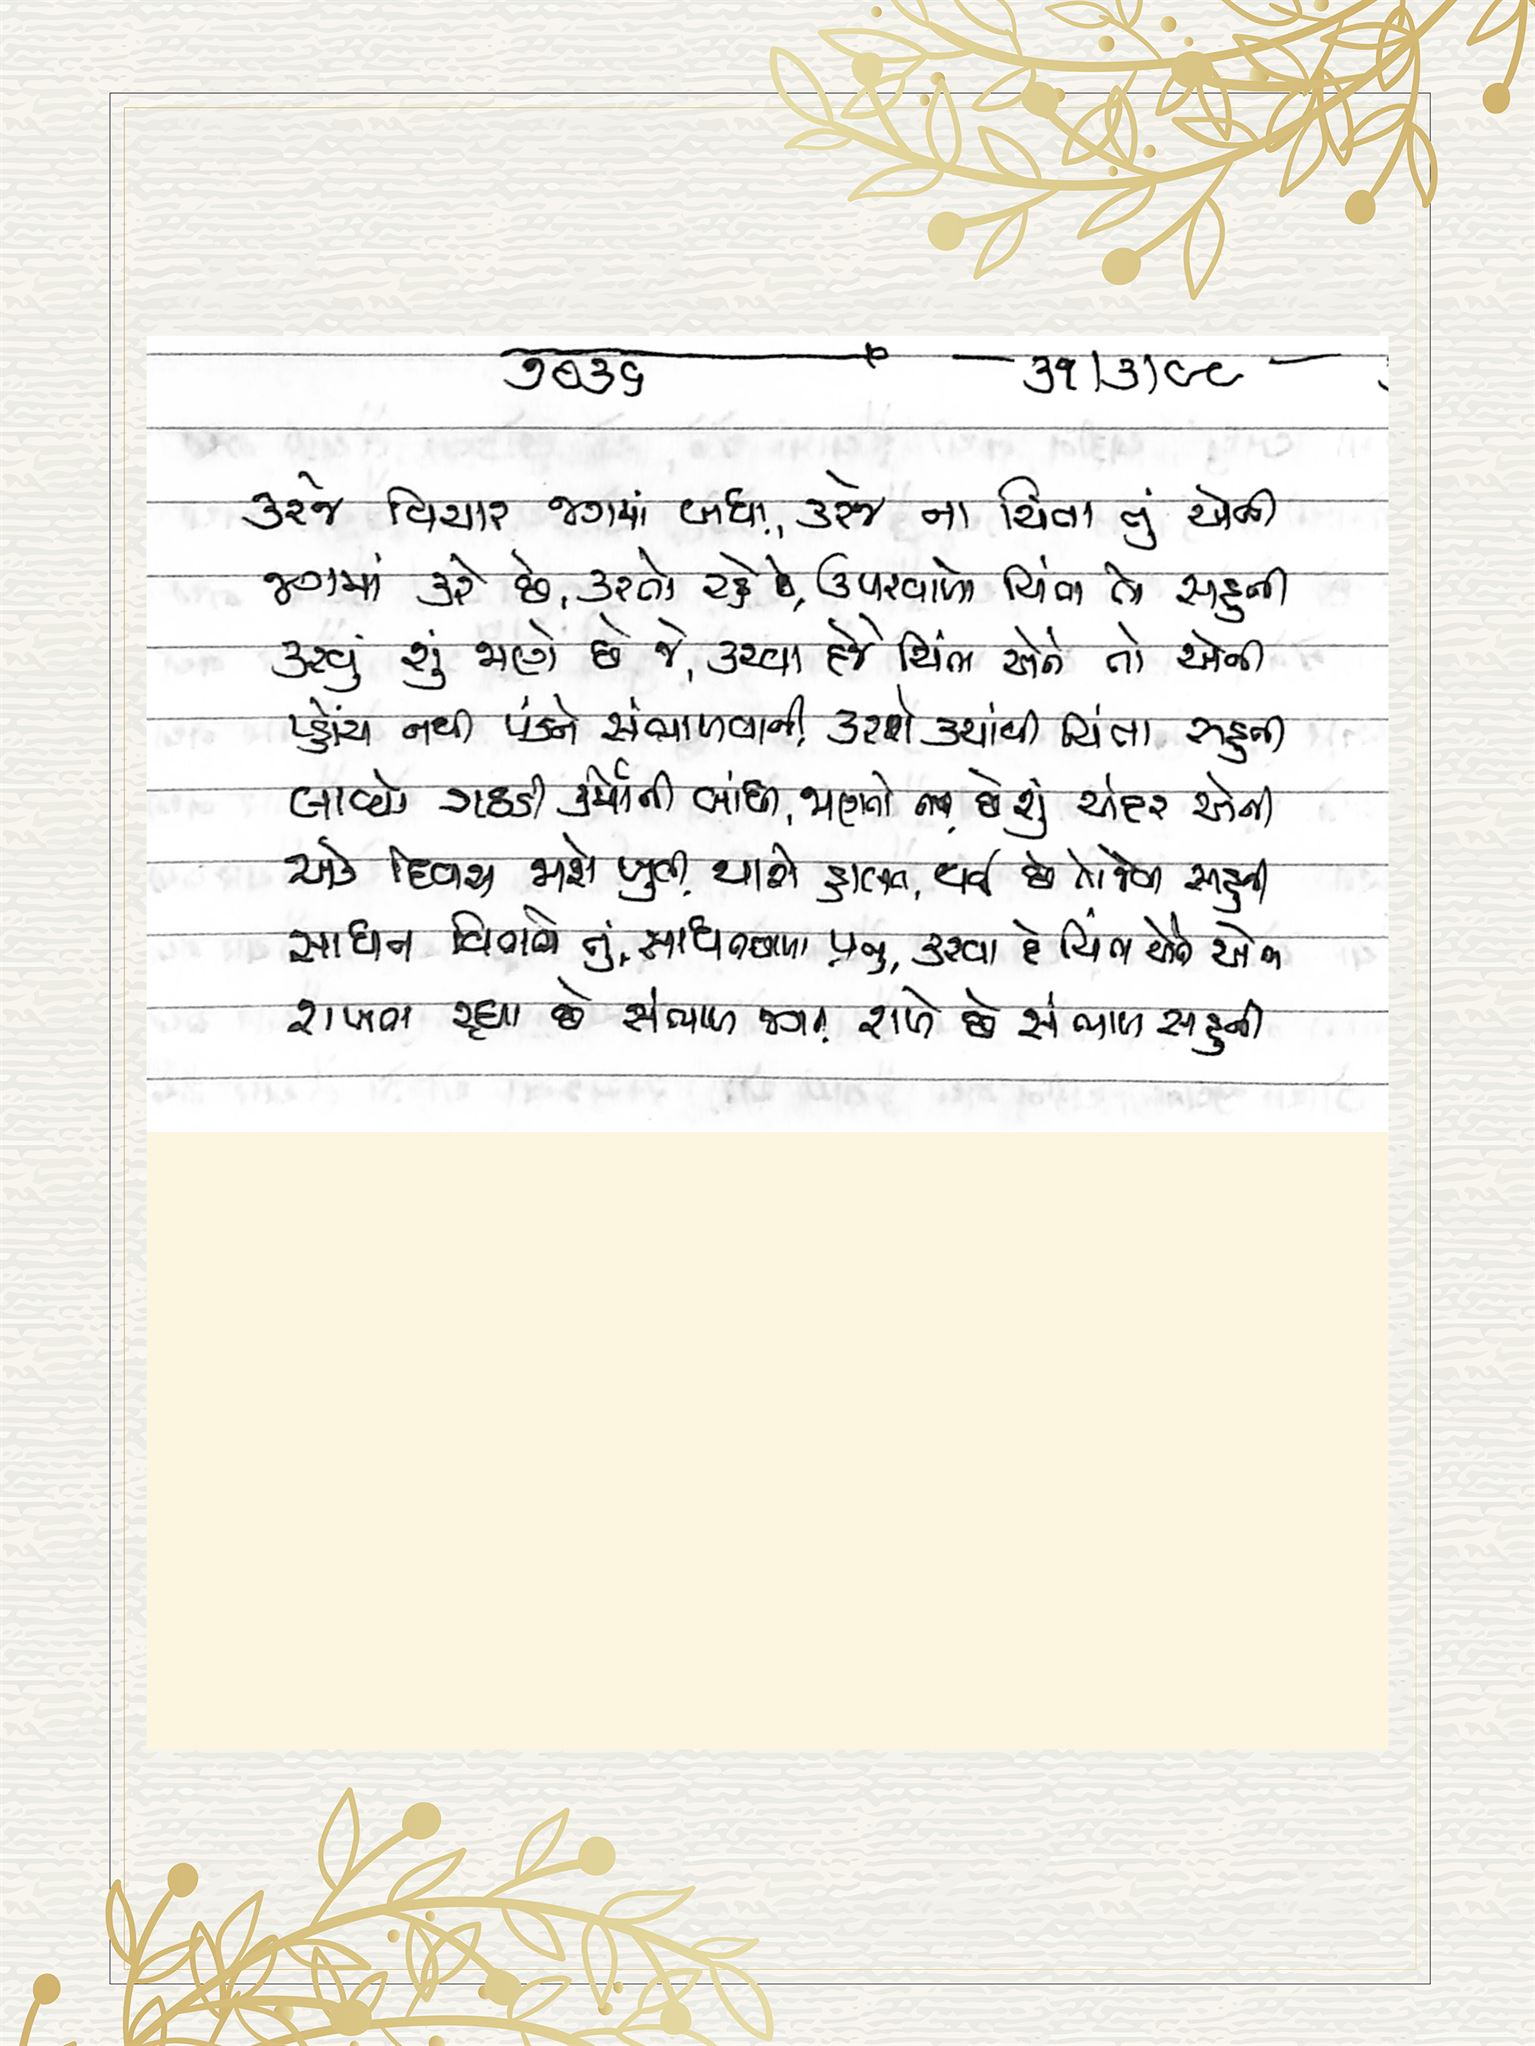 ૭૯૩૬ ૩૧/૩/૯૯
કરજે વિચાર જગમાં બધા, કરજે ના ચિંતા તું એની
જગમાં કરે છે, કરતો રહે છે, ઉપરવાળો ચિંતા તો સહુની
કરવું શું જાણે છે જે, કરવા દેજે ચિંતા એને તો એની
પહોંચ નથી પંડને સંભાળવાની, કરશે ક્યાંથી ચિંતા સહુની
લાવ્યો ગઠડી કર્મોની બાંધી, જાણતો નથી છે શું અંદર એની
એક દિવસ જાશે ખુલી, થાશે હાલત, સહુની
સાધન વિનાનો તું, પ્રભુ, કરવા દે ચિંતા એને એની
રાખતા રહ્યા છે સંભાળ જગની, રાખે છે સંભાળ સહુની